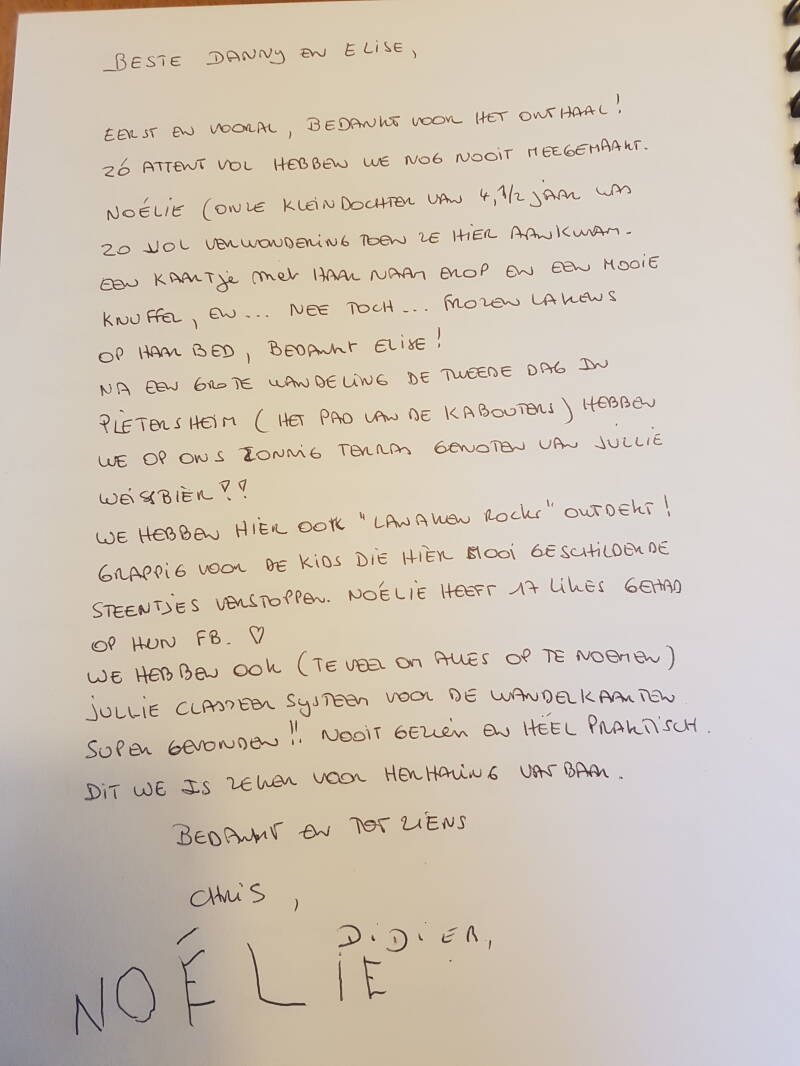 BESTE DANNY EN ELISE,
EERST EN VOORAL, BEDANKT VOOR HET ONTHAAL!
ZÓ ATTENT VOL HEBBEN WE NOG NOOIT MEEGEMAAKT.
NOÉLIE (ONZE KLEINDOCHTER VAN 4,1/2 JAAR WAS
ZO VOL VERWONDERING TOEN ZE HIER AANKWAM.
EEN KAARTJE MET HAAR NAAM EROP EN EEN MOOIE
KNUFFEL, EN... NEE TOCH... FROZEN LAKENS
OP HAAR BED, BEDANKT ELISE!
NA EEN GROTE WANDELING DE TWEEDE DAG IN
PIETERSHEIM (HET PAD VAN DE KABOUTERS) HEBBEN
WE OP ONS ZONNIG TERRAS GENOTEN VAN JULLIE
WEISSBIER!!
WE HEBBEN HIER OOK "LANAKEN ROCKS" ONTDEKT!
GRAPPIG VOOR DE KIDS DIE HIER MOOI GESCHILDERDE
STEENTJES VERSTOPPEN. NOÉLIE HEEFT 17 LIKES GEHAD
OP HUN FB. ♡
WE HEBBEN OOK (TE VEEL OM ALLES OP TE NOEMEN)
JULLIE CLASSEER SYSTEEM VOOR DE WANDELKAARTEN
SUPER GEVONDEN!! NOOIT GEZIEN EN HEEL PRAKTISCH.
DIT WE IS ZEKER VOOR HERHALING VATBAAR.
BEDANKT EN TOT ZIENS
CHRIS,
DIDIER,
NOÉLIE